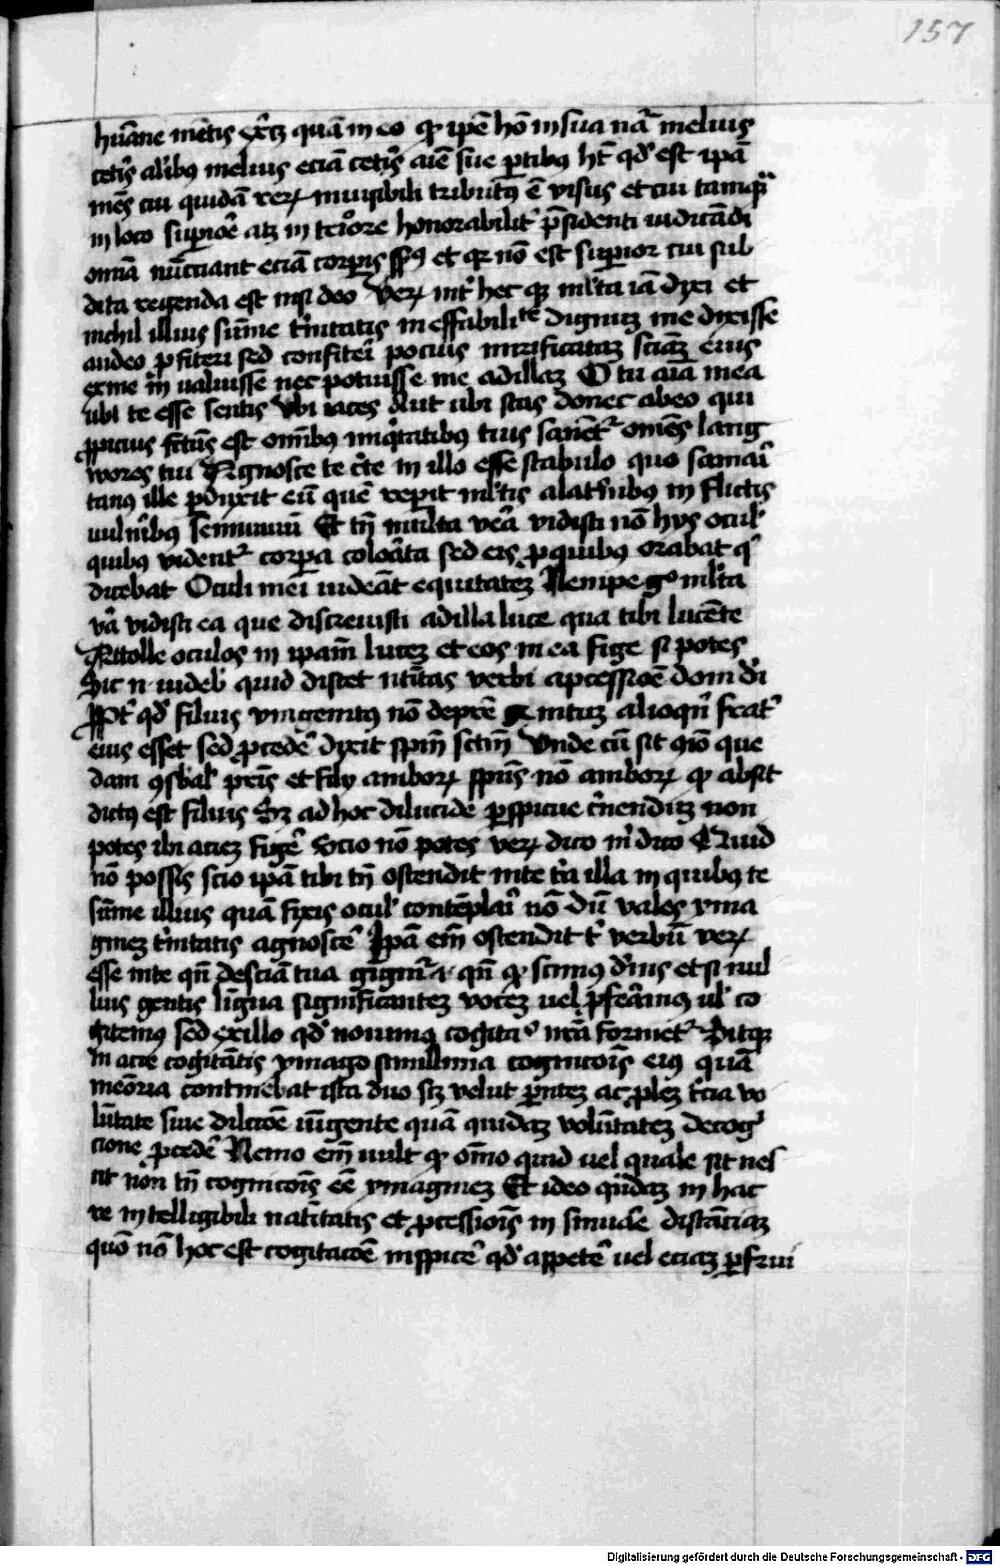 157
hūane mētis dr̄tz quā in eo qꝫ ipē hō in sua nā melius
cetīs alībus melius eciā cetīs aīe sūe ptibus ht̄ qđ est ipā
mēs cui quidā reꝝ inuisibiliū tributꝰ ē visus et cui tamqᷓ
in loco supiōe atꝫ in teriore honorabilit̄ p̄sidenti iudicādi
omīa nūciant eciā corpis sēsꝰ et qꝫ nō est supior cui sub
dita regenda est nisi deo Veꝝ int̄ hec que ml̄ta iā dixi et
nichil illius sūme t̄nitatis ineffabilite dignuꝫ me dixisse
audeo ꝓfiteri sed confiteri pocius mirificataꝫ sciāꝫ eius
ex me īn ualuisse nec potuisse me ad illaꝫ O tu aīa mea
ubi te esse sentis Vbi iaces Aut ubi stas donec abeo qui
ꝓpicius fc̄us est omībus iniq̄tatibꝰ tuis sanet̄ omēs lang
wores tui Agnosce te c̄te in illo esse stabulo quo samaī
tanus ille pduxit eū quē repit ml̄tis a latībus inflictis
uulnībus semiuiuū Et tn̄ multa v̄a vidisti nō hys ocul̄
quibus vident̄ corpa coloāta sed eis ꝓ quibus orabat q̄
dicebat Oculi mei uideāt equitateꝫ Nempe gᵒ ml̄ta
v̄a vidisti ea que discreuisti ad illa luce qua tibi lucēte
Attolle oculos in ipam̄ luceꝫ et eos in ea fige si potes
Sic n̄ uideb̄ quid distet nt̄itas verbi a ꝓcessiōe doni dī
Ppt̄ qđ filius vnigenitꝰ nō de pr̄e genituꝫ alioqn̄ frat̄
eius esset sed ꝓcedē dixit spm̄ sctm̄ Vnde cū sit ꝯio que
dam ꝯsb̄al̄ pris et fily amboꝝ spūs nō amboꝝ qꝫ absit
dictꝰ est filius Sꝫ ad hoc dilucide pspicue c̄nenduꝫ non
potes ibi acieꝫ figē Scio nō potes veꝝ dico m̄ dico Quid
nō possis scio ipā tibi tn̄ ostendit in te t̄a illa in quibus te
sūme illius quā fixis ocul̄ contēplaī nō dū vales yma
gineꝫ t̄nitatis agnoscē Ipā em̄ ostendit t̄ verbū veꝝ
esse in te qn̄ de sciā tua gignit̄ qn̄ qꝫ scimꝰ dīus et si nul
lius gentis lingua significanteꝫ voceꝫ uel ꝓfeāmus ul̄ co
gitemꝰ sed ex illo qđ nouimꝰ cogitaᵒ nr̄a formet̄ Sitqꝫ
in acie cogitātis ymago simillima cognicōis eiꝰ quā
meōria continebat ista duo scꝫ velut pnteꝫ ac ꝓleꝫ t̄cia vo
lūtate siue dilcōe iūgente quā quidaꝫ volūtateꝫ de coḡ
cione ꝓcedē Nemo em̄ uult qꝫ om̄o quid uel quale sit nes
cit non tn̄ cognicōis eē ymagineꝫ Et ideo qīdaꝫ in hac
re intelligibili natītatis et ꝓcessiōis in sinuāe distāciaꝫ
quō nō hoc est cogitacōe inspicē qđ appetē uel eciaꝫ pfrui
Digitalisierung gefördert durch die Deutsche Forschungsgemeinschaft - DFG